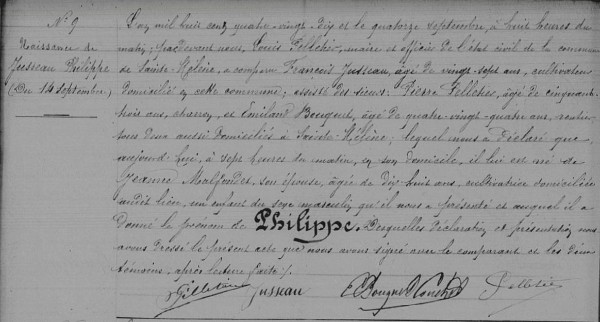 N° 9
Naissance de
Jusseau Philippe
(Du 14 septembre)
L'an mil huit cent quatre-vingt dix et le quatorze septembre, à huit heures du
matin; pardevant nous, Louis Pelletier, maire et officier de l'état civil de la commune
de Sainte Hélène, a comparu François Jusseau, âgé de vingt-sept ans, cultivateur
domicilié en cette commune; assisté des sieurs: Pierre Pelletier, âgé de cinquante
trois ans, charron, et Emiland Bouguet, âgé de quatre-vingt-quatre ans, rentier,
tous deux aussi domiciliés à Sainte-Hélène; lequel nous a déclaré que,
aujourd'hui, à sept heures du matin, en son domicile, il lui est né de
Malfondet, son épouse, âgée de dix-huit ans, cultivatrice domiciliée
audit lieu, un enfant du sexe masculin, qu'il nous a présenté et auquel il a
donné le prénom de Philippe. Desquelles déclaration et présentation nous
avons dressé le présent acte que nous avons signé avec le comparant et les deux
témoins, après lecture faite.
Pelletier Jusseau E Bouguet Pelletier